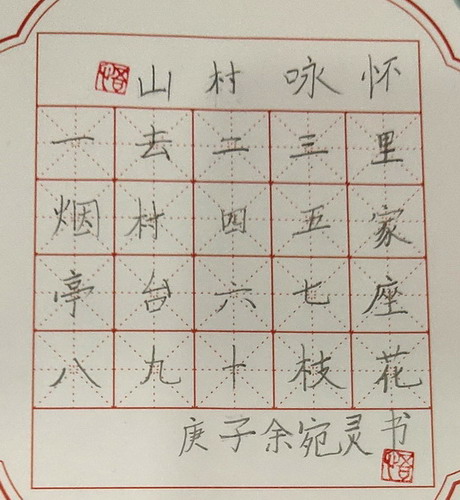 山村咏怀
一去二三里
烟村四五家
亭台六七座
八九十枝花
庚子余宛灵书